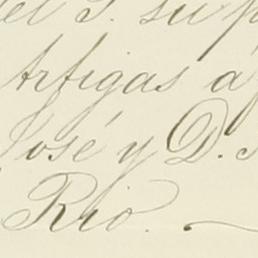 el S. su p
Artigas á
José y D. J
Rio.